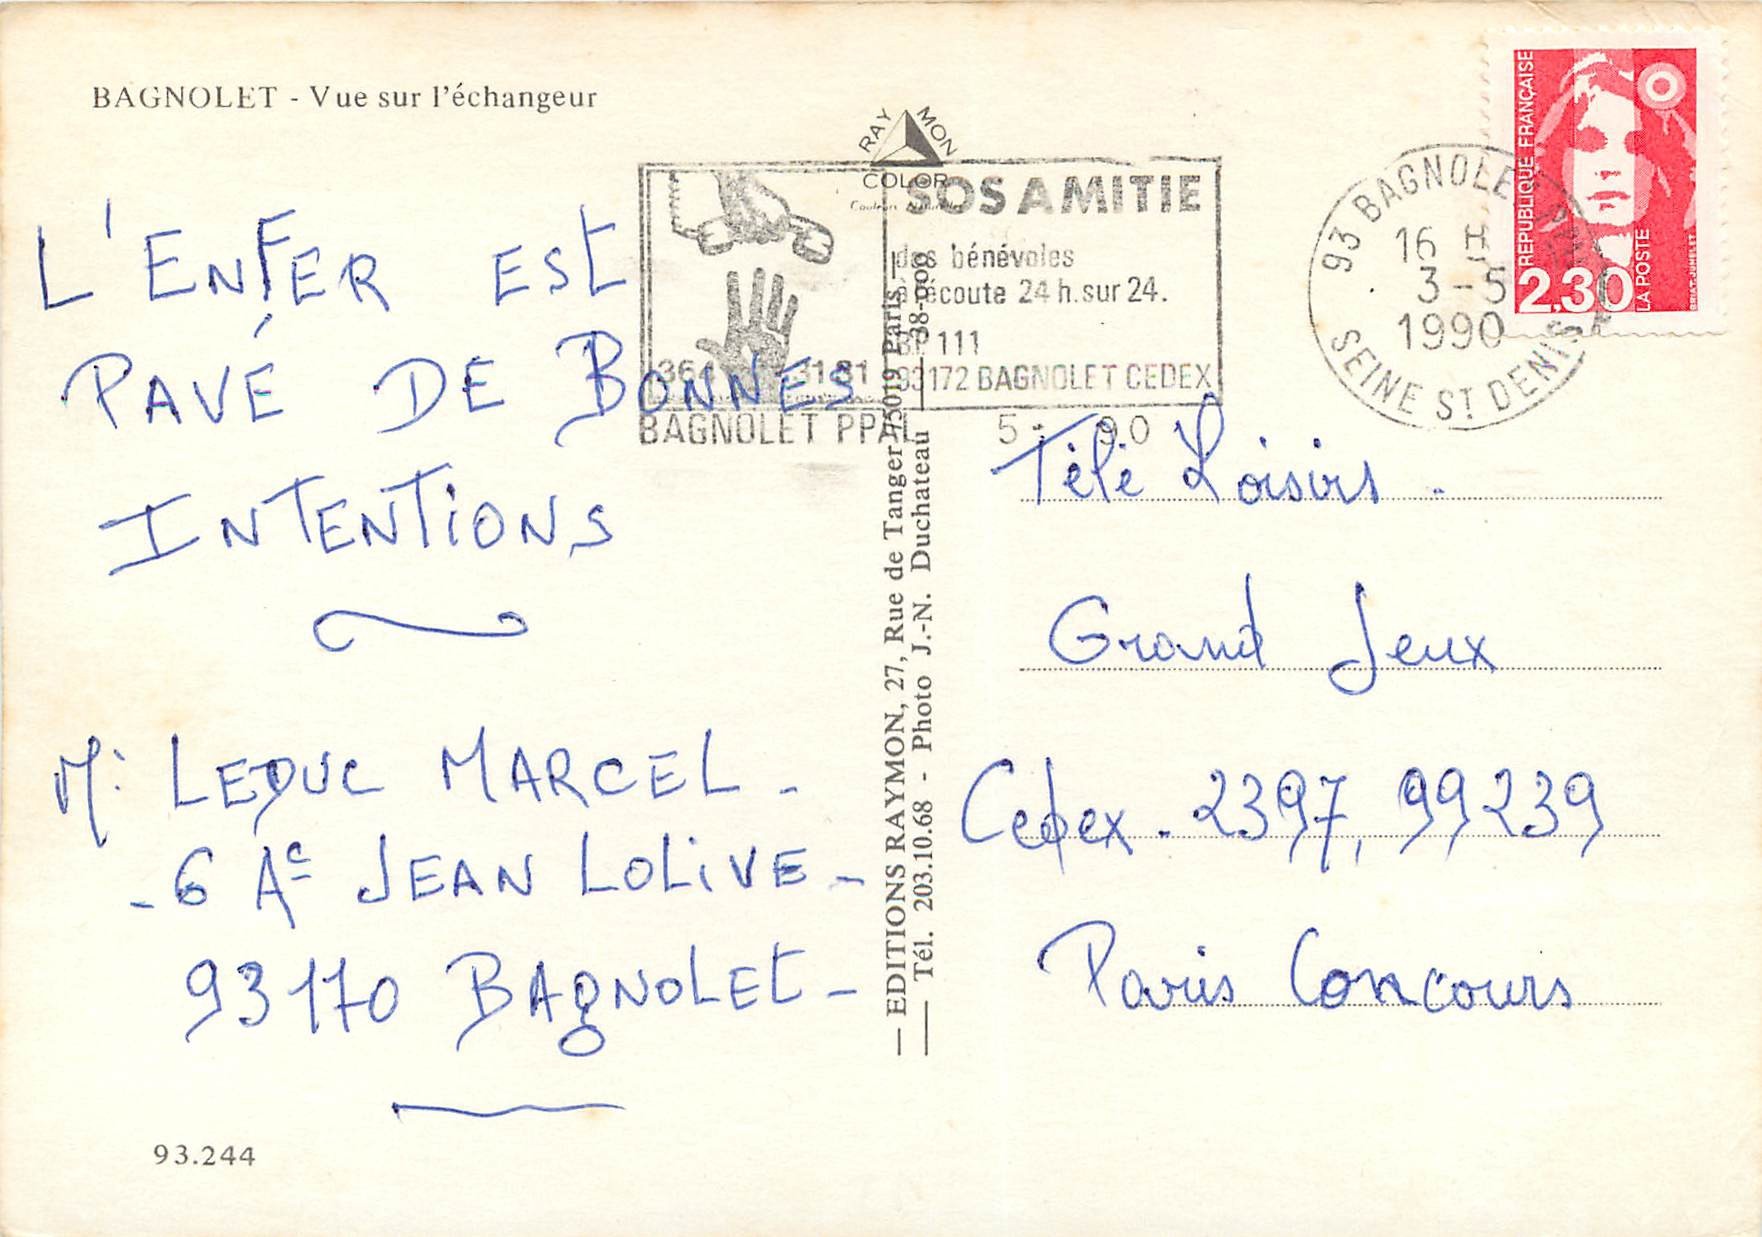 BAGNOLET - Vue sur l'échangeur
L'ENFER EST
PAVÉ DE BONNES
INTENTIONS
Mr LEDUC MARCEL -
- 6 Ac JEAN LOLIVE -
93170 BAGNOLET -
93.244
RAYMON
COLOR
SOS AMITIE
des bénévoles
à écoute 24 h. sur 24.
BP 111
93172 BAGNOLET CEDEX
31 81
BAGNOLET PPAL
5 - 90
— EDITIONS RAYMON, 27, Rue de Tanger 75019 Paris —
Tél. 203.10.68 - Photo J.-N. Duchateau
93 BAGNOLET
16 H
3 - 5
1990
SEINE ST DENIS
REPUBLIQUE FRANÇAISE
2,30
LA POSTE
BRIAT-JUMELET
Télé Loisirs -
Grand Jeux
Cedex - 2397, 99239
Paris Concours